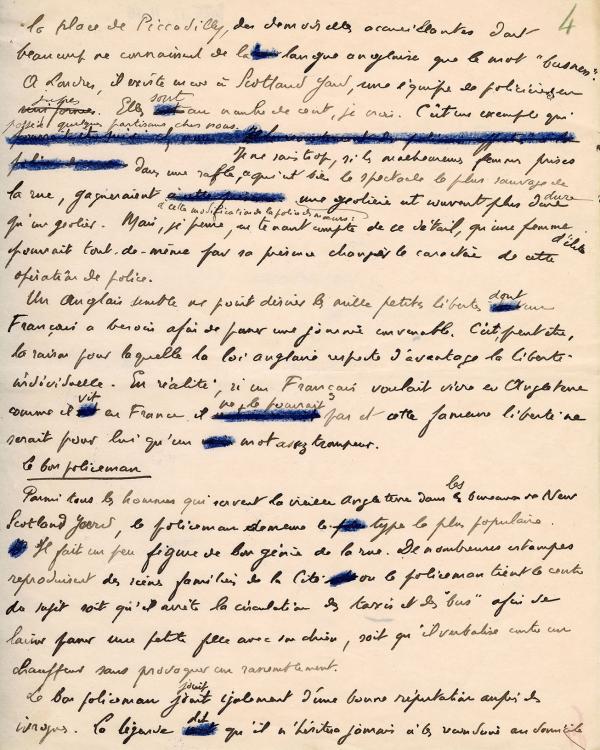 4
la place de Piccadilly, des demoiselles accueillantes dont
beaucoup ne connaissent de la langue anglaise que le mot "busness".
A Londres, il existe encore à Scotland Yard, une équipe de policiers en
jupes. Elles sont au nombre de cent, je crois. C'est un exemple qui
possède quelques partisans chez nous.
Je ne sais trop, si les malheureuses femmes prises
dans une rafle, ce qui est bien le spectacle le plus sauvage de
la rue, gagneraient une geolière est souvent plus dure
à cette modification de la police des moeurs:
qu'un geolier. Mais, je pense, en tenant compte de ce détail, qu'une femme d'élite
pourrait tout-de-même par sa présence changer le caractère de cette
opération de police.
Un Anglais semble ne point désirer les mille petites libertés dont un
Français a besoin afin de passer une journée convenable. C'est, peut être,
la raison pour laquelle la loi anglaise respecte d'avantage la liberté
individuelle. En réalité, si un Français voulait vivre en Angleterre
comme il vit en France il ne le pourrait pas et cette fameuse liberté ne
serait pour lui qu'un mot assez trompeur.
Le bon policeman
Parmi tous les hommes qui servent la vieille Angleterre dans les bureaux de New
Scotland Yard, le policeman demeure le type le plus populaire.
Il fait un peu figure de bon génie de la rue. De nombreuses estampes
reproduisent des scènes familières de la Cité où le policeman tient le centre
du sujet soit qu'il arrête la circulation des taxis et des "bus" afin de
laisser passer une petite fille avec son chien, soit qu'il verbalise contre un
chauffeur sans provoquer un rassemblement.
Le bon policeman jouit également d'une bonne réputation auprès des
ivrognes. La légende dit qu'il n'hésitera jamais à les conduire au domicile